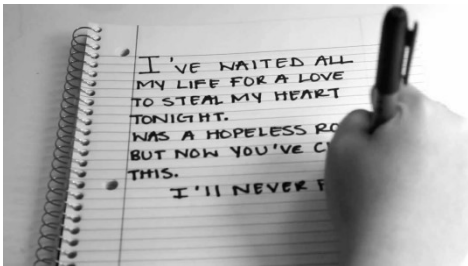 I'VE WAITED ALL
MY LIFE FOR A LOVE
TO STEAL MY HEART
TONIGHT.
WAS A HOPELESS
BUT NOW YOU'VE
THIS.
I'll NEVER